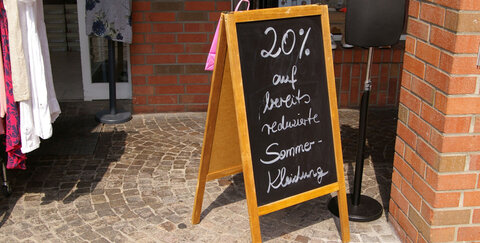 20%
auf
bereits
reduzierte
Sommer-
Kleidung